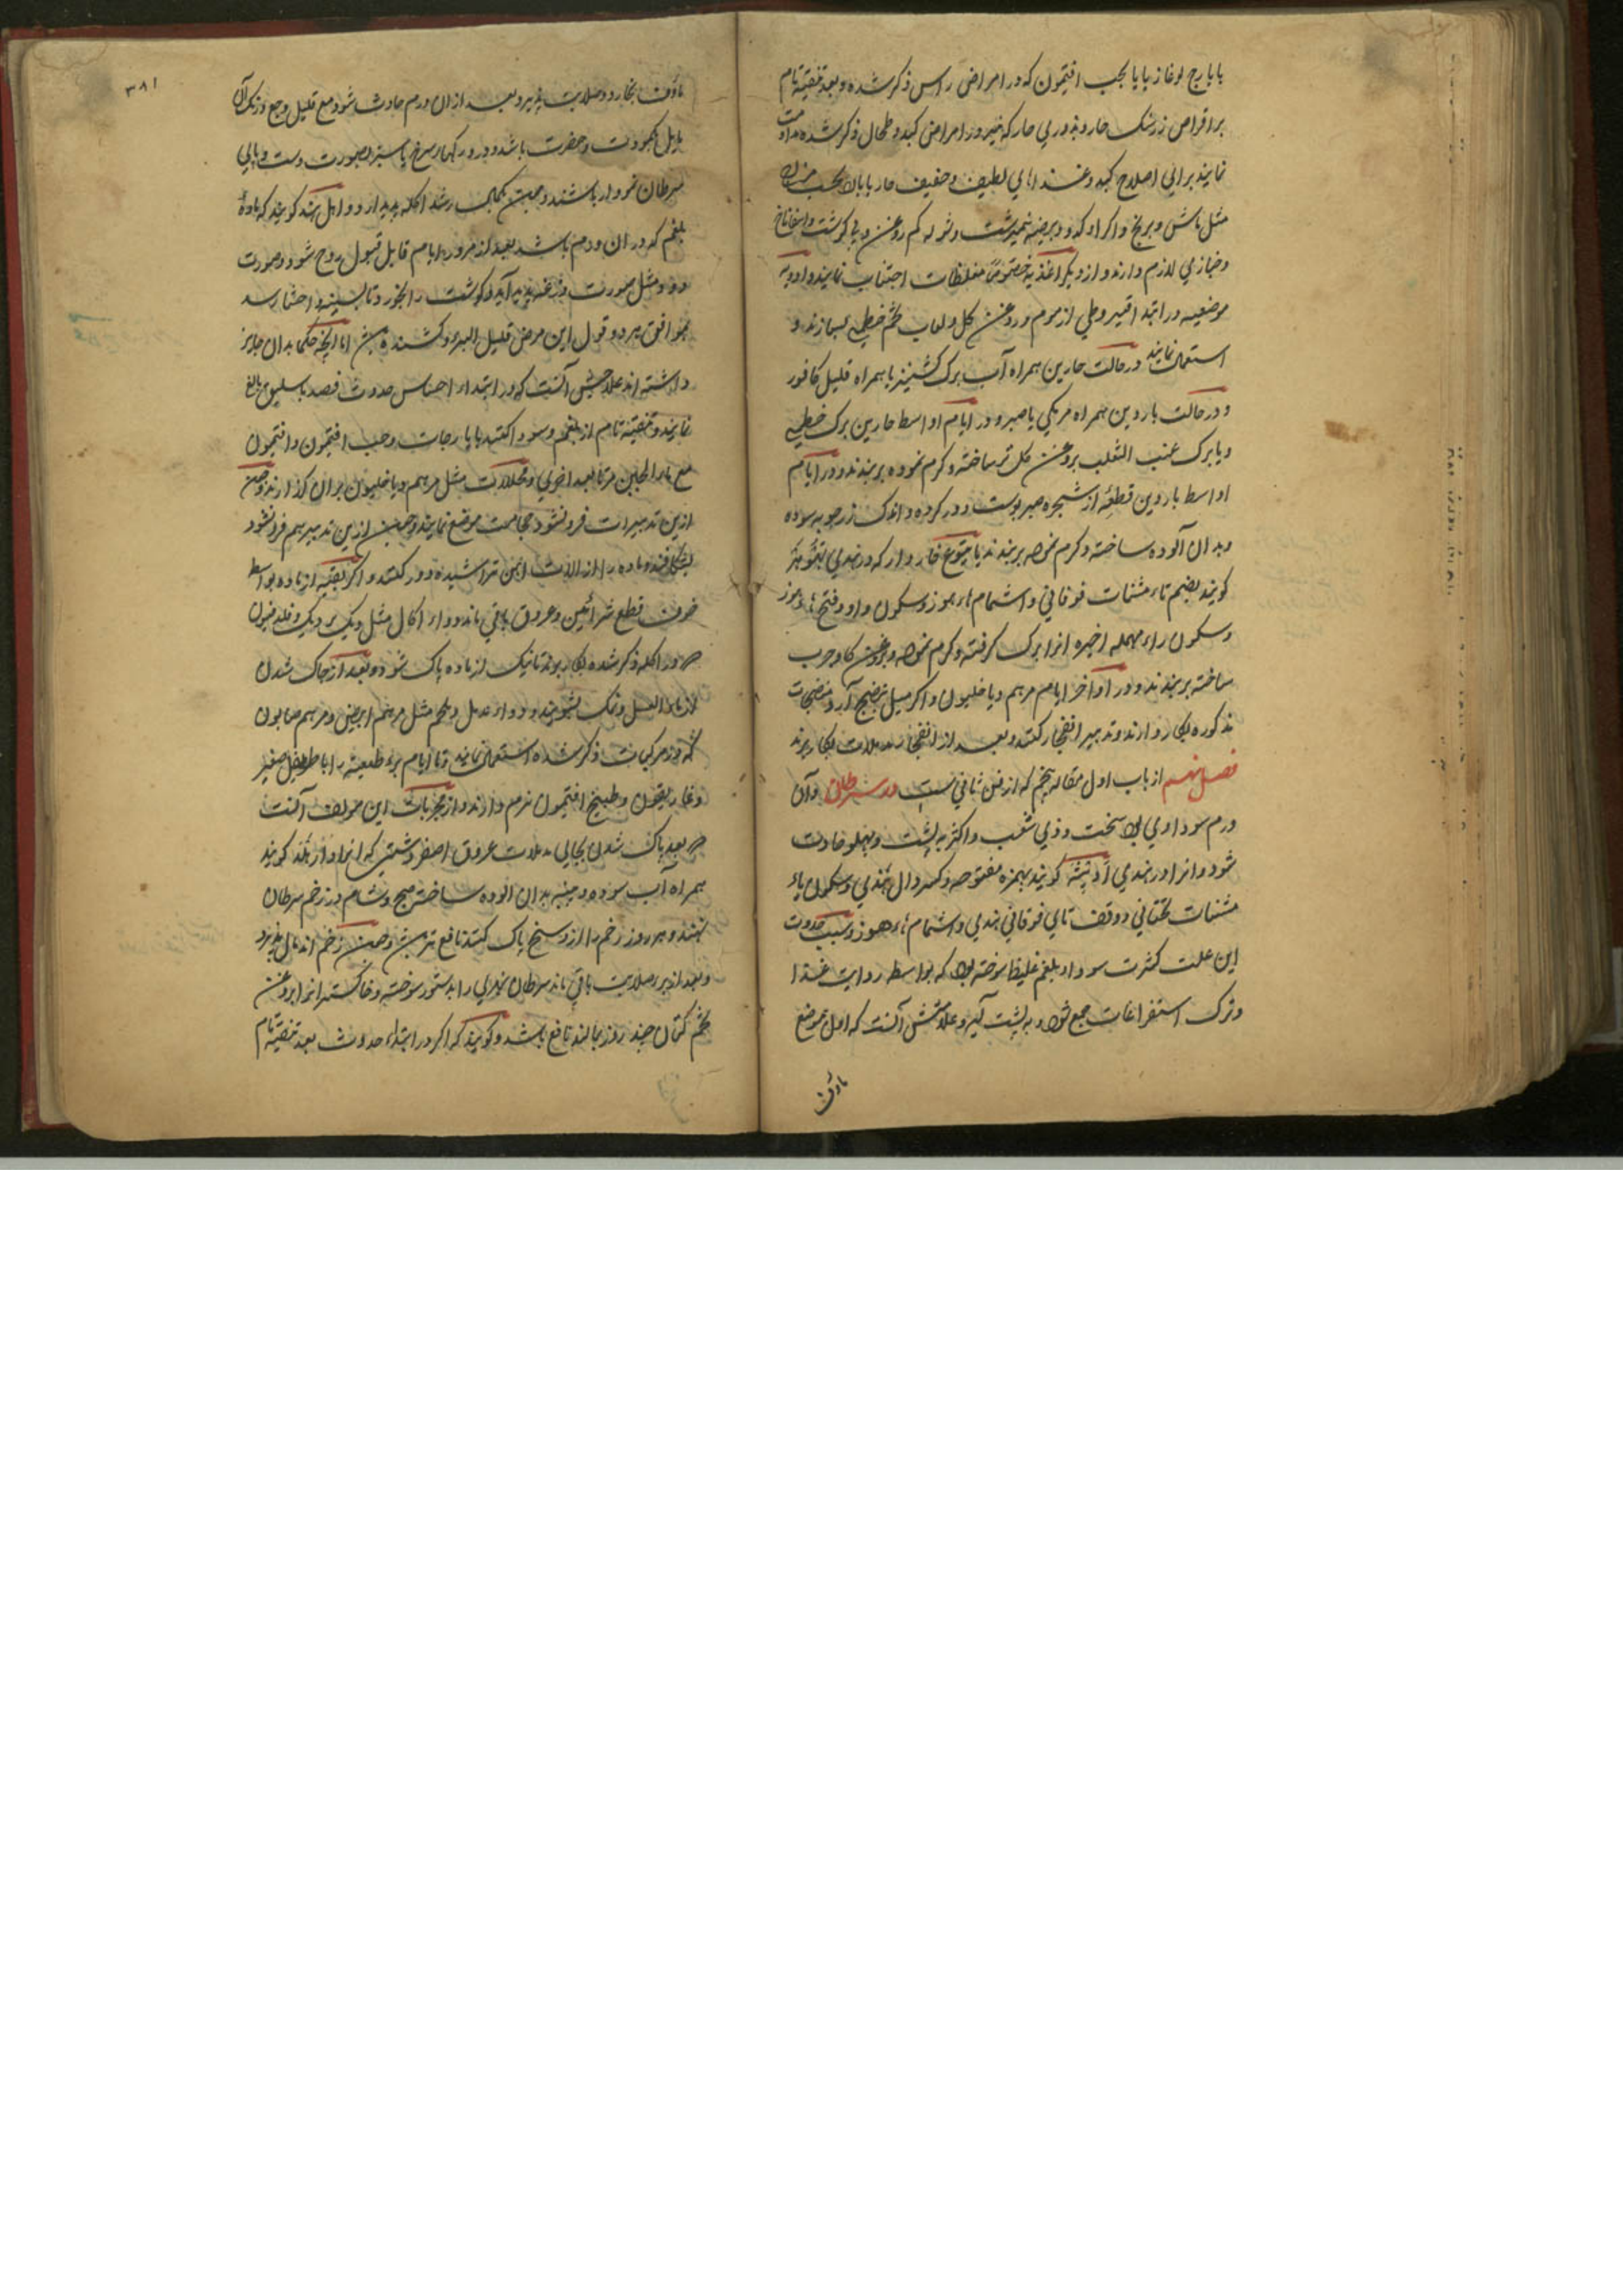 بایارج لوغازیا یا بحب افتیمون که در امراض راس ذکر شده و بعد تنقیه تام
بر اقراص زرشک حار و بزوری حار که نیز در امراض کبد و طحال ذکر شده مداومت
نمایند برای اصلاح کبد و غذاهای لطیف و خفیف حار یا بارد بحسب مزاج
مثل ماش و برنج و اکرا و کدو و بیضه نیمبرشت و شوله کم روغن و بی گوشت و اسفاناخ
و خبازی لازم دارند و از دیگر اغذیه خصوصاً مغلظات اجتناب نمایند و ادویه
موضعیه در ابتدا قیروطی از موم و روغن گل و لعاب تخم خطمی بسازند و
استعمال نمایند در حالت حارین همراه آب برک کشنیز یا همراه قلیل کافور
و در حالت باردین همراه مرمکی یا صبر و در ایام اواسط حارین برک خطمی
و یا برک عنب الثعلب بروغن گل تر ساخته و گرم نموده بربندند و در ایام
اواسط باردین قطعه از شجره صبر پوست دور کرده و اندک زردچوبه سوده
و بدان آلوده ساخته و گرم نموده بربندند یا یتوع خاردار که در هندی تهوهر
گویند بضم تاء مثنات فوقانی و اشمام هاء هوز و سکون واو و فتح هاء هوز
و سکون راء مهمله اخیره انرا برک گرفته و گرم نموده و بروغن گاو چرب
ساخته بربندند و در اواخر ایام مرهم دیاخلیون و اگر میل بنضج آرد منضجات
مذکوره بکار دارند و تدبیر انفجار کنند و بعد از انفجار مدملات بکار برند
فصل نهم از باب اول مقاله پنجم که از فن ثانی ست در سرطان و آن
ورم سوداوی بود سخت و ذی شعب و اکثر به پشت و پهلو حادث
شود و انرا در هندی ادیته گویند بهمزه مفتوحه و کسر دال هندی و سکون یاء
مثنات تحتانی و وقف تای فوقانی هندی و اشمام هاء هوز و سبب حدوث
این علت کثرت سودا و بلغم غلیظ سوخته بود که بواسطه رداءت غذا
و ترک استفراغات جمع شود و به پشت آید و علامتش آنست که اول موضع
ماؤف
۳۸۱
ماؤف بخارد و صلابت پذیرد و بعد از ان ورم حادث شود مع قلیل وجع و رنگ آن
مایل بکمودت و خضرت باشد و در و رگهای سرخ یا سبز بصورت دست و پای
سرطان نمودار باشند و چون بکمال رسد اکله پدید ارد و اهل هند گویند که ماده
بلغم که در ان ورم باشد بعد از مرور ایام قابل قبول روح شود و صورت
دود مثل صورت وزغه پدید آید و گوشت را بخورد تا بسینه و احشا رسد
بموافق هر دو قول این مرض قلیل البرء و کشنده بود اما آنچه حکما بدان جایز
داشته اند علاجش آنست که در ابتداء احساس حدوث فصد باسلیق بالغ
نمایند و تنقیه تام از بلغم و سودا کنند بایارجات و حب افتیمون و افتیمون
مع ماء الجبن مرة بعد اخری و محللات مثل مرهم دیاخلیون بران گذارند و چون
ازین تدبیرات فرو نشود حجامت موضع نمایند و چون ازین تدبیر هم فرو نشود
بشگافند و ماده را از الات اهن تراشیده دور کنند و اگر بقیه از ماده بواسط
خوف قطع شرائین و عروق باقی ماند دواء اکال مثل دیک بر دیک و فلدفیون
که در اکله ذکر شده بکار برند تا نیک از ماده پاک شود و بعد از چاک شدن
از ماء العسل و نمک بشویند و دواء مدمل و ملحم مثل مرهم ابیض و مرهم صابون
که در مرکبات ذکر شده استعمال نمایند و تا ایام برء طبیعت را باطریفل صغیر
و غاریقون و طبیخ افتیمون نرم دارند و از مجربات این مولف آنست
که بعد پاک شدن بجای مدملات عروق اصفر و شتی که انرا دارهلد گویند
همراه آب سوده و پنبه بدان آلوده ساخته صبح و شام در زخم سرطان
نهند و هر روز زخم را از وسخ پاک کنند نافع ترین بود و چون زخم اندمال پذیرد
و بعد از برء صلابت باقی ماند سرطان نهری را بدستور سوخته و خاکستر انرا بروغن
تخم کتان چند روز بمالند نافع باشد و گویند که اگر در ابتداء حدوث بعد تنقیه تام